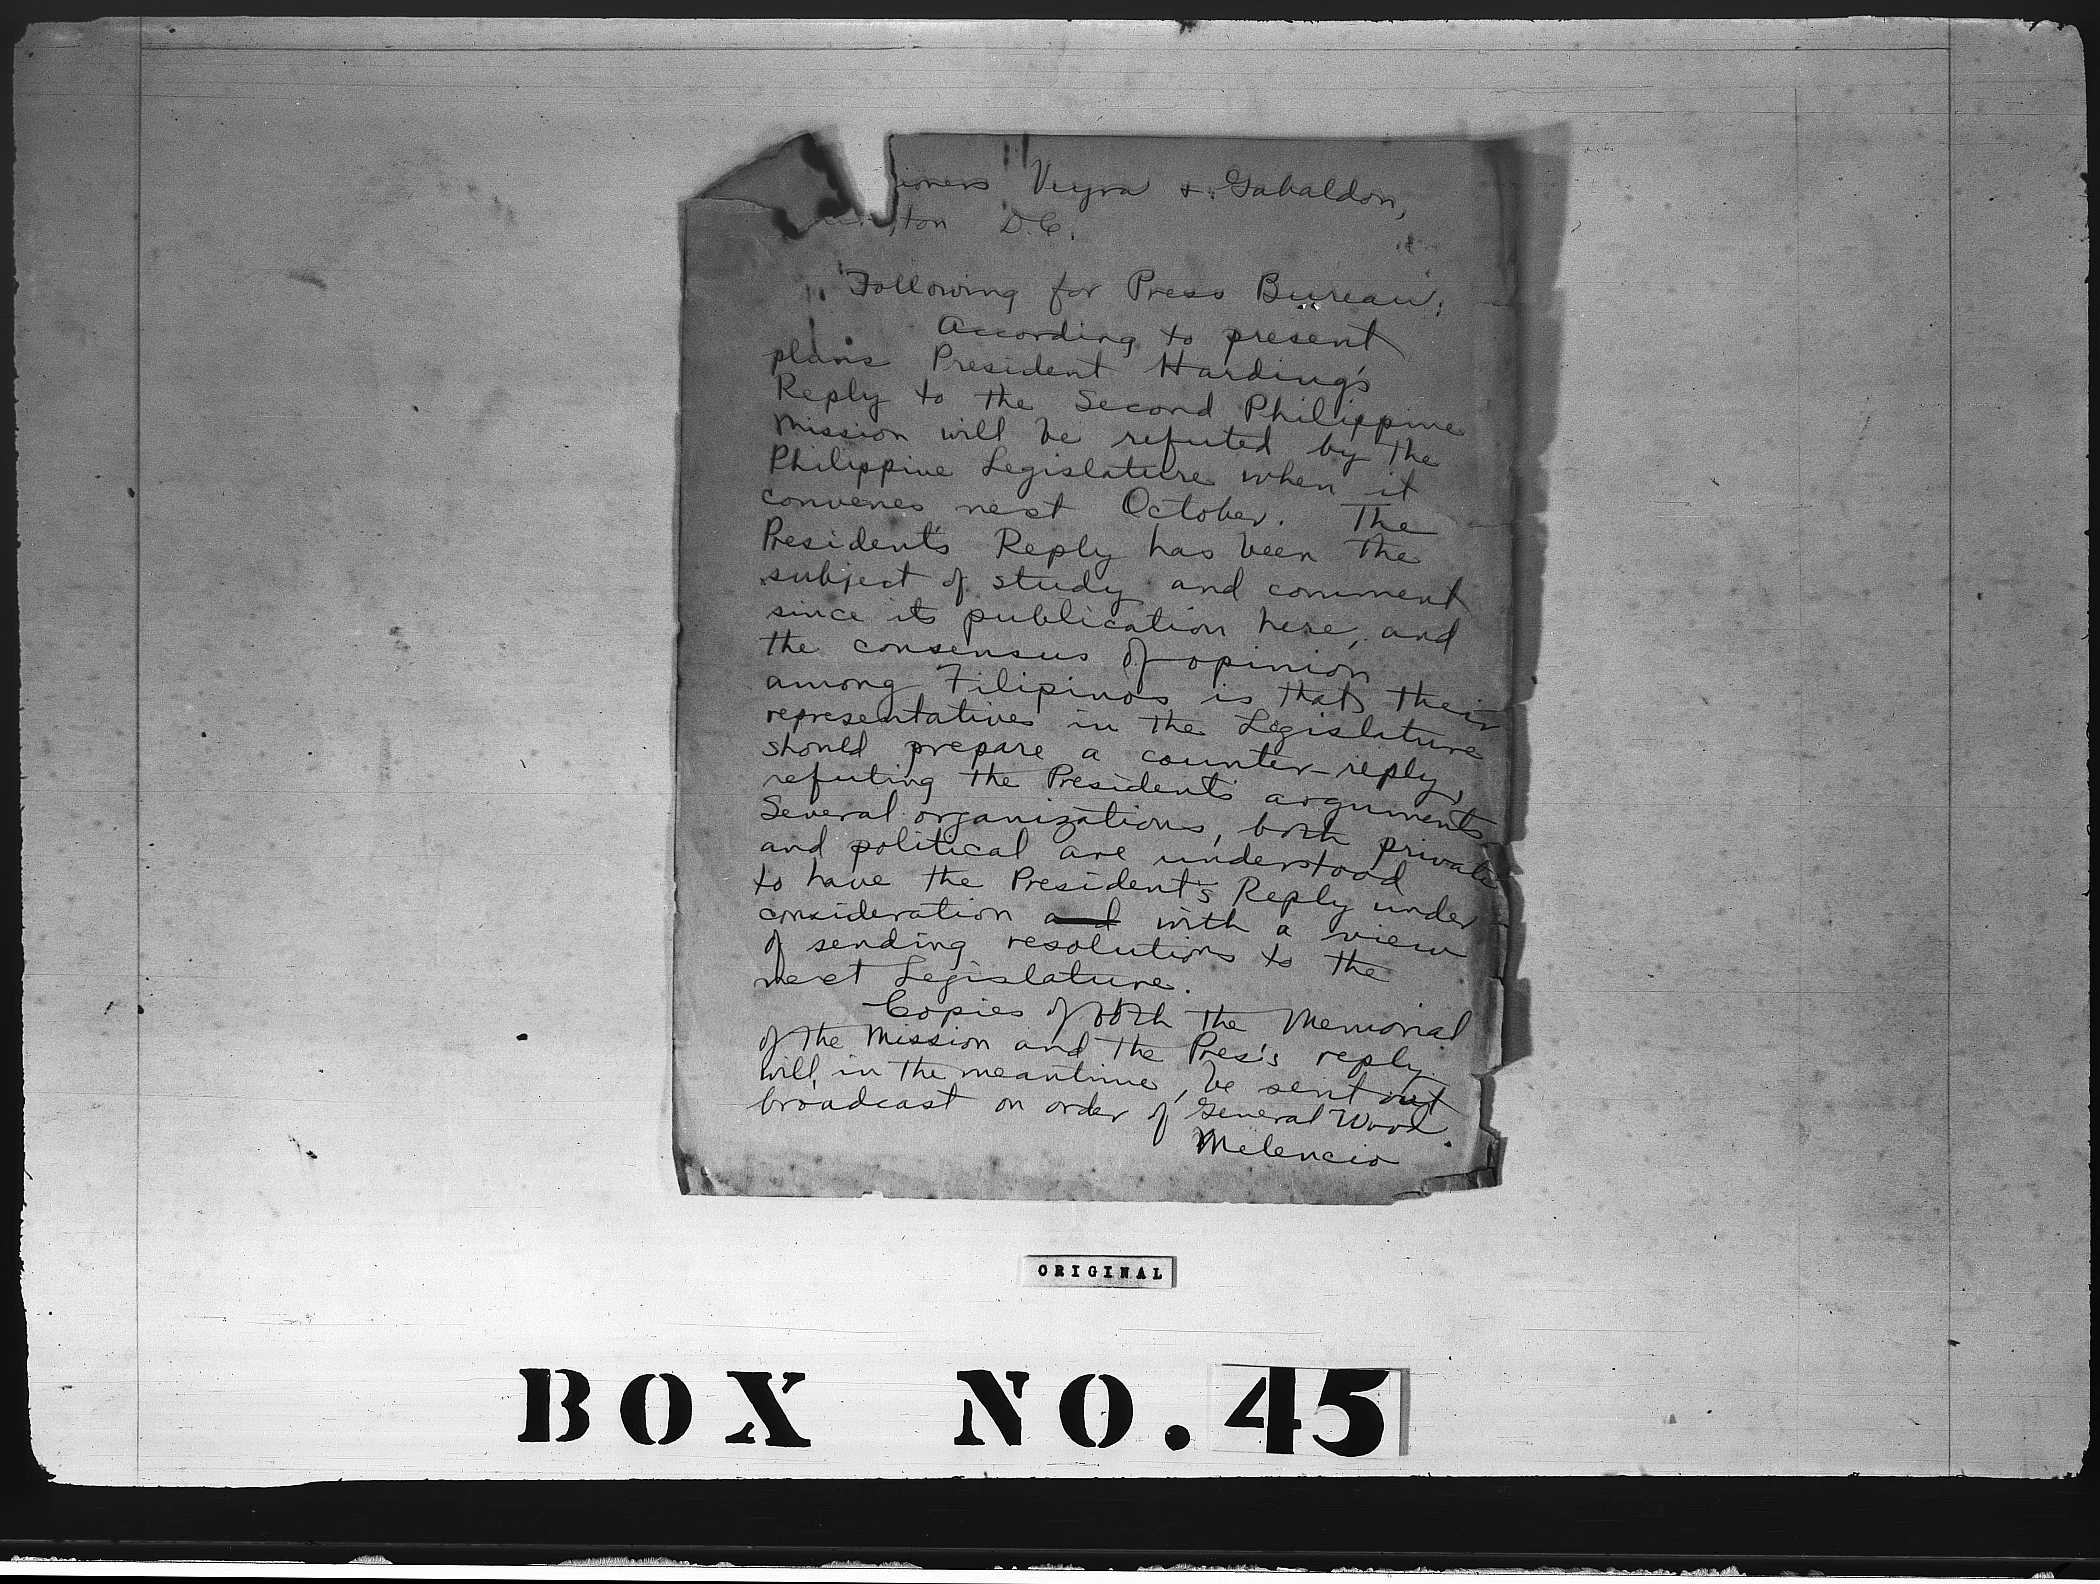 ioners Veyra & Gabaldon,
ton D.C.
Following for Press Bureau:
According to present
plans President Harding's
Reply to the Second Philippine
Mission will be refuted by the
Philippine Legislature when it
convenes next October. The
President's Reply has been the
subject of study and comment
since its publication here, and
the consensus of opinion
among Filipinos is that their
representatives in the Legislature
should prepare a counter-reply,
refuting the President's arguments.
Several organizations, both private
and political are understood
to have the President's Reply under
consideration and with a view
of sending resolutions to the
next Legislature.
Copies of both the Memorial
of the Mission and the Pres's reply
will, in the meantime, be sent out
broadcast on order of General Wood.
Melencio
ORIGINAL
BOX NO. 45